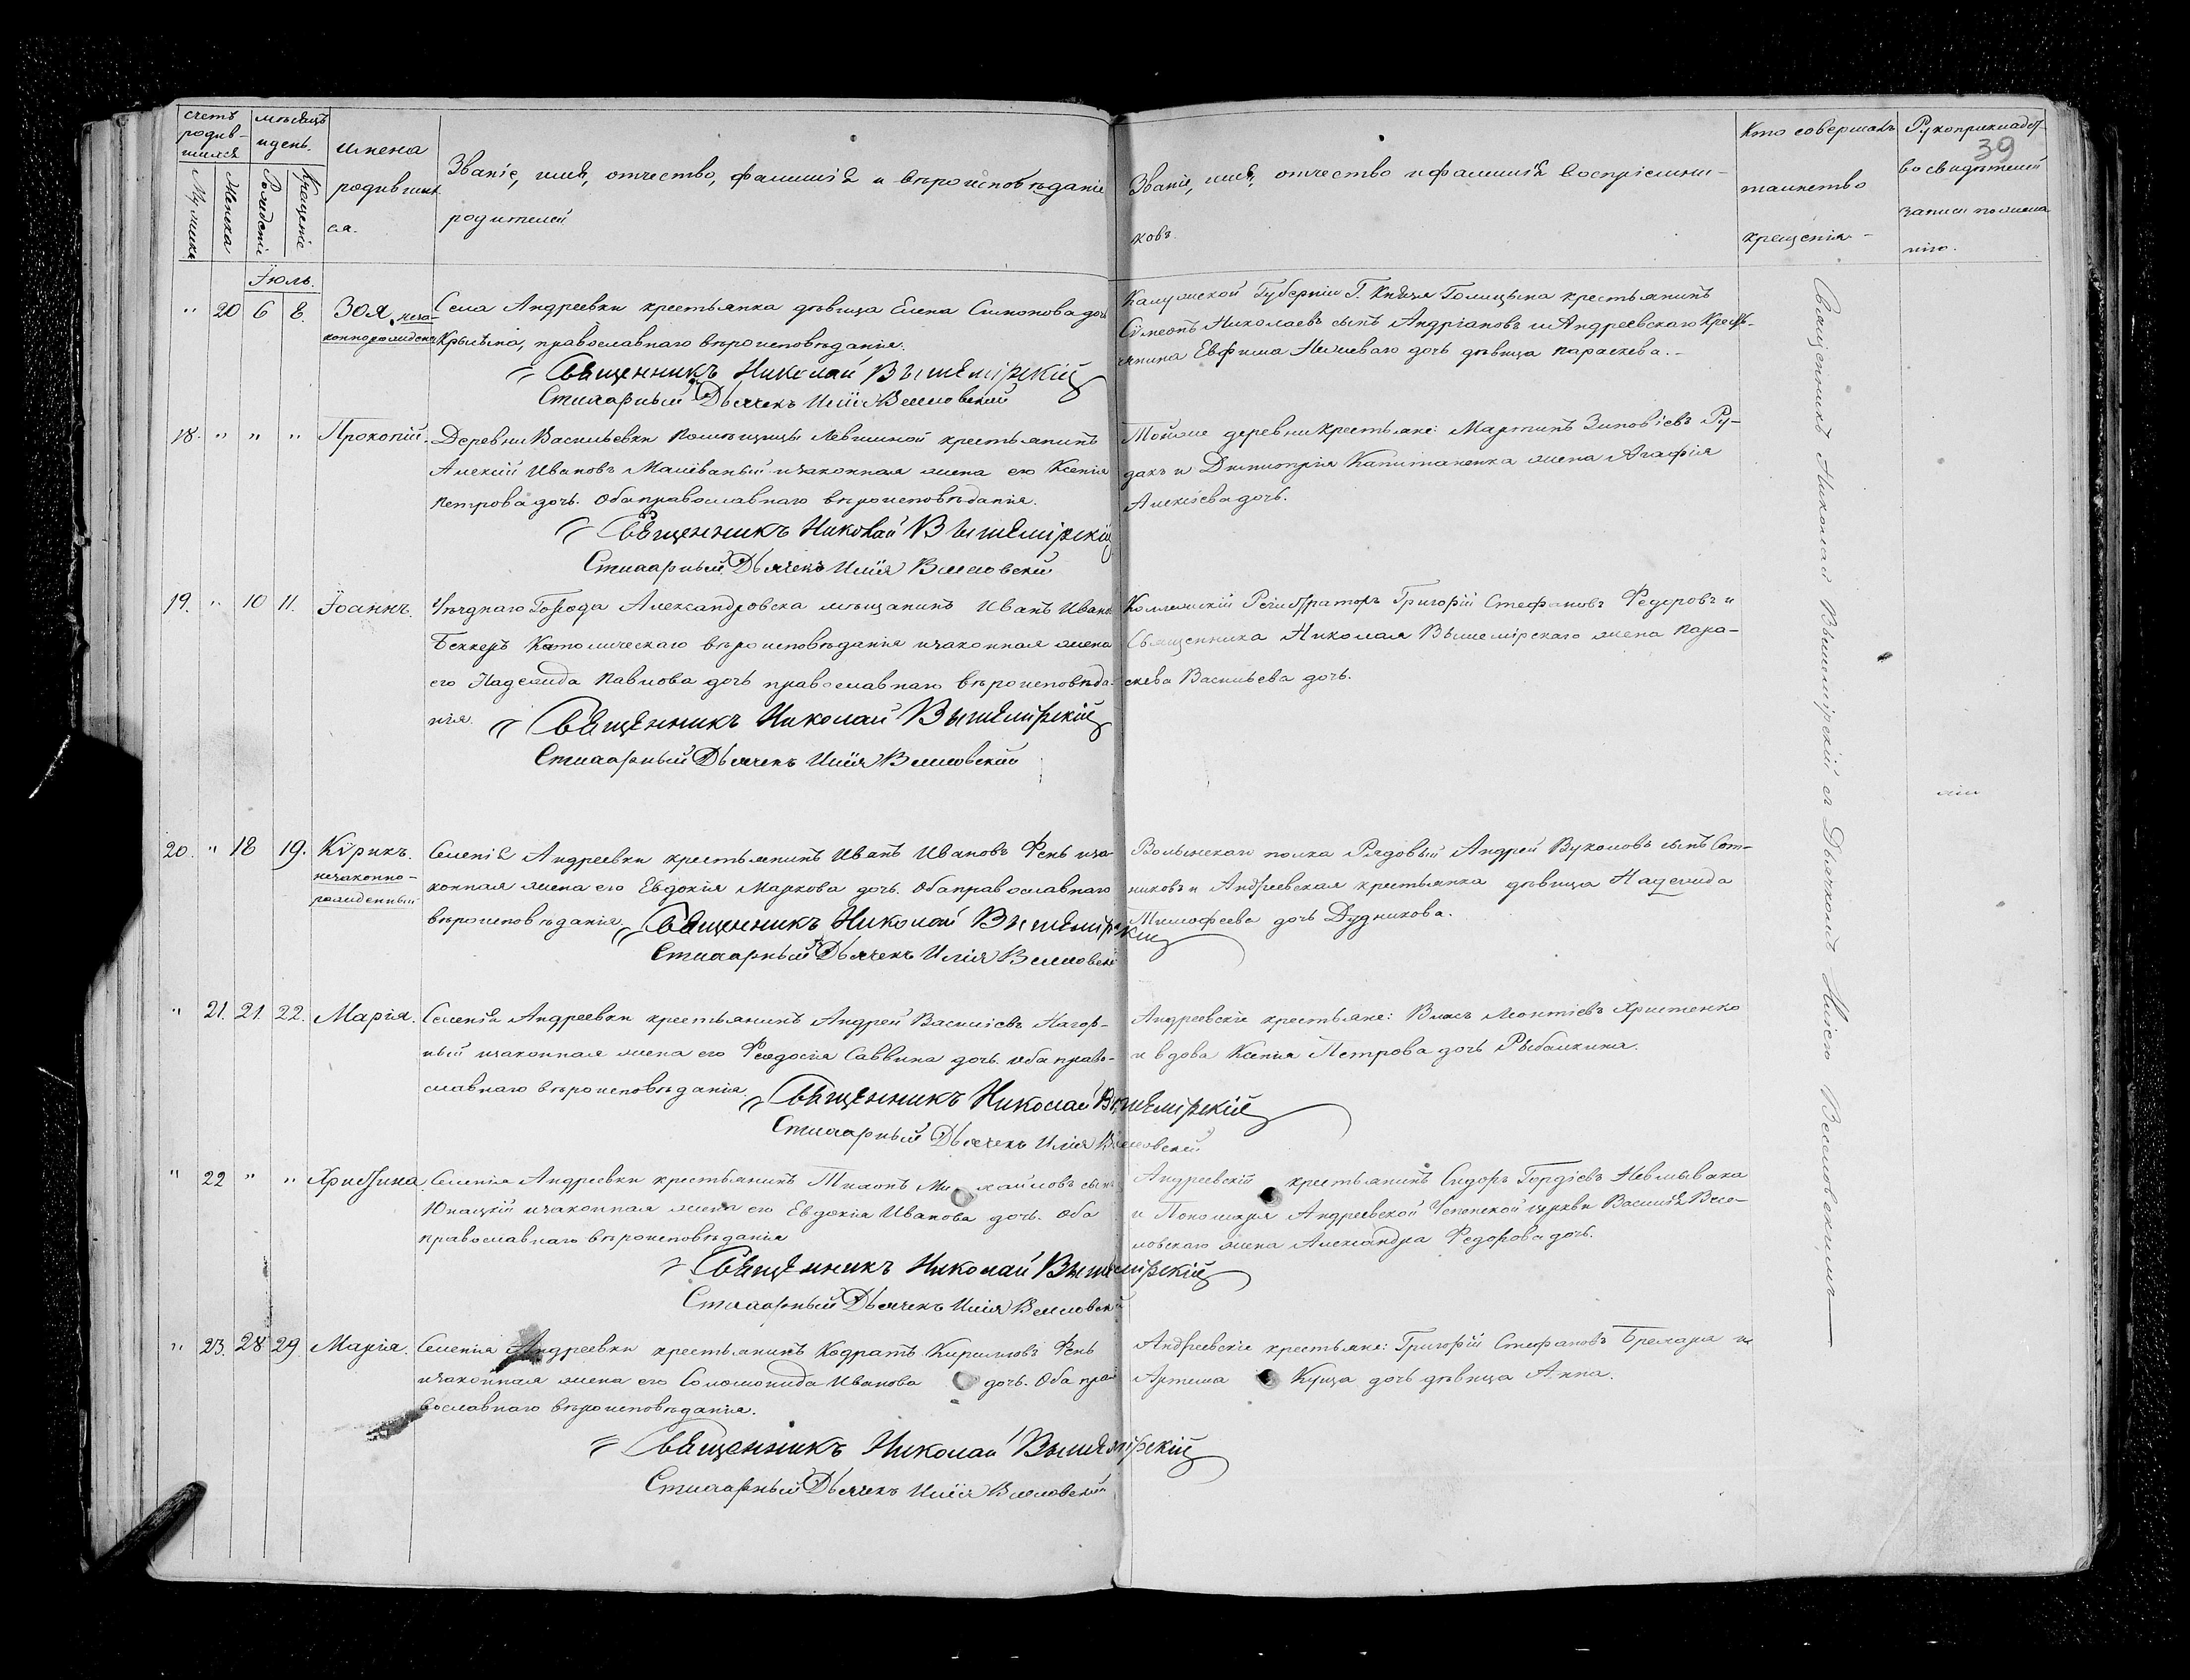 счетъ родив-шихся
мѣсяцъ и день.
имена родивших ся.
Званіе, имя, отчество, фамилія и вѣроисповѣданіе
родителей
Званіе, имя, отчество и фамилія воспріемни-
ковъ
Кто совершалъ
таинство
крещенія
Рукоприкладст-
во свидѣтелей
записи по жела
нію.
39
Мужеска
Женска
Рожденіе
Крещеніе
Іюль.
" 20 6 8. Зоя неза-
коннорожденна
Села Андреевки крестьянка дѣвица Елена Симонова доч
Крылѣна, православнаго вѣроисповѣданія.
Священникъ Николай Вышемірскій
Стихарный Дьячекъ Илія Веселовскій
Калужской Губерніи Г. Князя Голицына крестьянинъ
Сѵмеонъ Николаевъ сынъ Андріановъ и Андреевскаго Кресть-
янина Евфима дочь дѣвица Параскева.-
18. " " " Прокопій.
Деревни Васильевки Помѣщицы Левшиной крестьянинъ
Алексій Ивановъ Малёваный и законная жена его Ксенія
Петрова дочь. Оба православнаго вѣроисповѣданія.
Священникъ Николай Вышемірскій
Стихарный Дьячекъ Илія Веселовскій
Тойже деревни Крестьяне: Мартинъ Зиновіевъ Ру-
дакъ и Димитрія Капитаненка жена Агафія
Алексіева дочь.
19. " 10 11. Іоаннъ.
Уѣзднаго Города Александровска мѣщанинъ Иванъ Ивано
Беккеръ Католическаго вѣроисповѣданія и законная жена
его Надежда Павлова дочь православнаго вѣроисповѣда-
нія.
Священникъ Николай Вышемірскій
Стихарный Дьячекъ Илія Веселовскій
Коллежскій Регистраторъ Григорій Стефановъ Федоровъ и
Священника Николая Вышемірскаго жена Пара-
скева Васильева дочь.
20. " 18 19. Кѵрикъ.
незаконно-
рожденный
Селенія Андреевки крестьянинъ Иванъ Ивановъ Фень и за-
конная жена его Евдокія Маркова дочь. Оба православнаго
вѣроисповѣданія.
Священникъ Николай Вышемірскій
Стихарный Дьячекъ Илія Веселовскі
Волынскаго полка Рядовый Андрей Вуколовъ сынъ Сот-
никовъ и Андреевская крестьянка дѣвица Надежда
Тимофеева дочь Дудникова.
" 21. 21. 22. Марія.
Селенія Андреевки крестьянинъ Андрей Василіевъ Нагор-
ный и законная жена его Феодосія Саввина дочь. Оба право-
славнаго вѣроисповѣданія
Священникъ Николай Вышемірскій
Стихарный Дьячекъ Илія Веселовскій
Андреевскіе крестьяне: Власъ Леонтіевъ Христенко
и вдова Ксенія Петрова дочь Рыбалкина.
" 22 " " Христина
Селенія Андреевки крестьянинъ Тихонъ Михайловъ сынъ
Юнацкій и законная жена его Евдокія Иванова дочь. Оба
православнаго вѣроисповѣданія
Священникъ Николай Вышемірскій
Стихарный Дьячекъ Илія Веселовскій
Андреевскій крестьянинъ Сидоръ Гордіевъ Невмывака
и Пономаря Андреевской Успенской церкви Василія Весе-
ловскаго жена Александра Федорова дочь.
" 23. 28 29. Марія.
Селенія Андреевки крестьянинъ Кодратъ Кириловъ Фень
и законная жена его Соломонида Иванова дочь. Оба пра-
вославнаго вѣроисповѣданія.
Священникъ Николай Вышемірскій
Стихарный Дьячекъ Илія Веселовскій
Андреевскіе крестьяне: Григорій Стефановъ и
Артема Куща дочь дѣвица Анна.
Священникъ Николай Вышемірскій съ Дьячкомъ Иліею Веселовскимъ